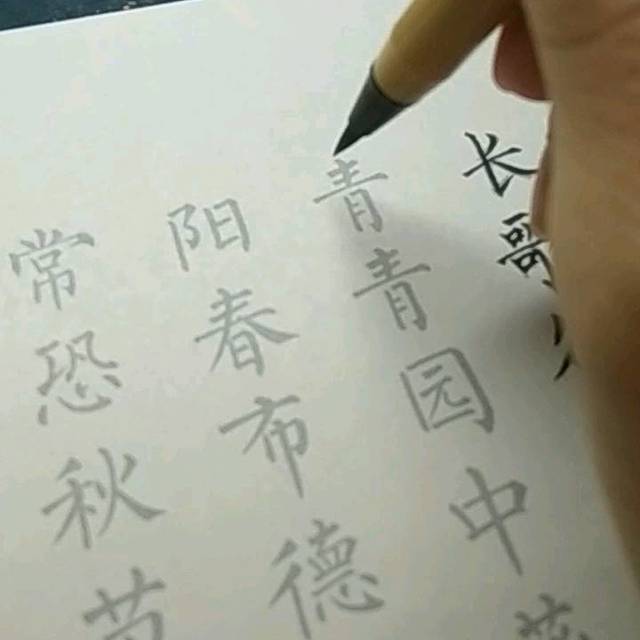 长歌
青青园中
阳春布德
常恐秋节